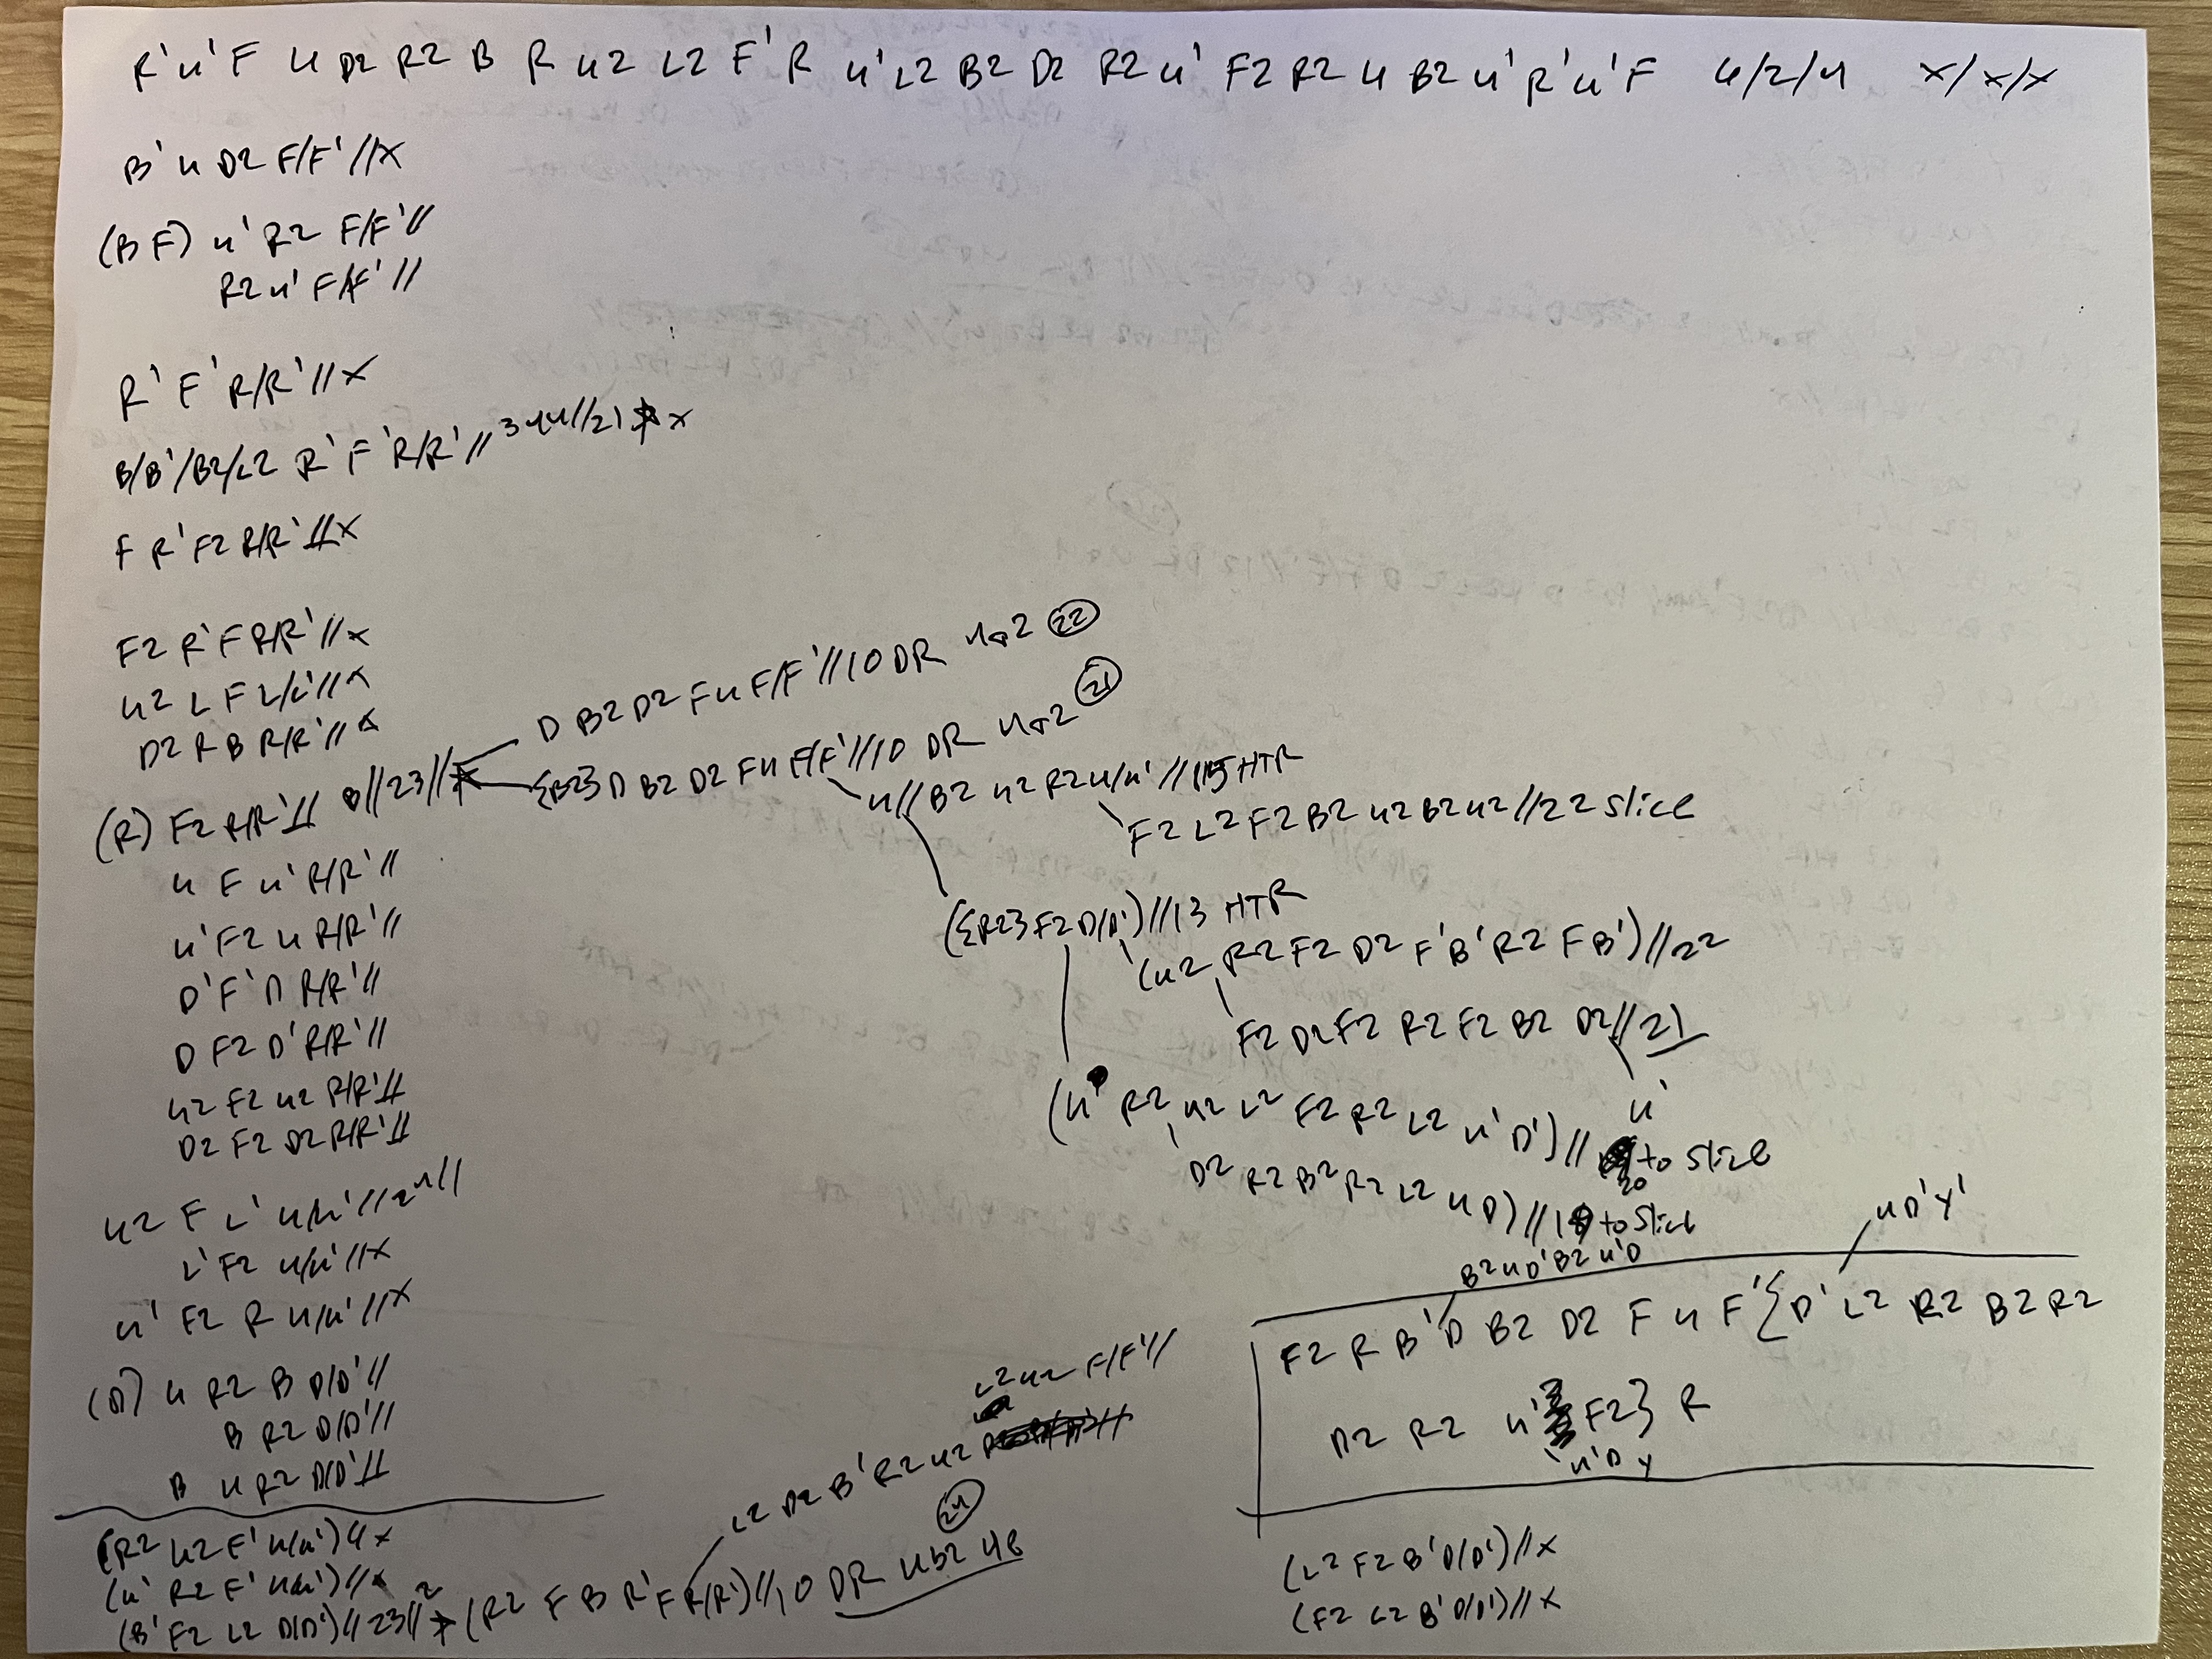 R' u' F u D2 R2 B R u2 L2 F' R u' L2 B2 D2 R2 u' F2 R2 u B2 u' R' u' F 4/2/4 x/x/x
B' u D2 F/F' // x
(B F) u' R2 F/F' //
R2 u' F/F' //
R' F' R/R' // x
B/B'/B2/L2 R' F' R/R' // x
F R' F2 R/R' // x
F2 R' F R/R' // x
u2 L F L/L' // x
D2 R B R/R' // x
(R) F2 R/R' // 8//23//
D B2 D2 F u F/F' // 10 DR 4a2 (22)
{B2} D B2 D2 F u F/F' // 10 DR 4a2 (21)
u // B2 u2 R2 u/u' // 15 HTR
F2 L2 F2 B2 u2 B2 u2 // 22 slice
u F u' R/R' //
u' F2 u R/R' //
D' F' D R/R' //
D F2 D' R/R' //
u2 F2 u2 R/R' //
D2 F2 D2 R/R' //
({R2} F2 D/D') // 13 HTR
(u2 R2 F2 D2 F' B' R2 F B') // 22
F2 D2 F2 R2 F2 B2 D2 // 21
u'
(u' R2 u2 L2 F2 R2 L2 u' D') // 20 to slice
D2 R2 B2 R2 L2 u D) // 19 to slice
u2 F L' u/u' // 24 //
L' F2 u/u' // x
u' F2 R u/u' // x
(D) u R2 B D/D' //
B R2 D/D' //
B u R2 D/D' //
B2 u D' B2 u' D
u D' y'
F2 R B' D B2 D2 F u F' { D' L2 R2 B2 R2
D2 R2 u' F2 } R
u' D y
(R2 u2 F' u/u') // x
(u' R2 F' u/u') // x
(B' F2 L2 D/D') // 23 // (R2 F B R' F R/R') // 10 DR 4b2 4e (24)
L2 D2 B' R2 u2
L2 u2 F/F' //
(L2 F2 B' D/D') // x
(F2 L2 B' D/D') // x